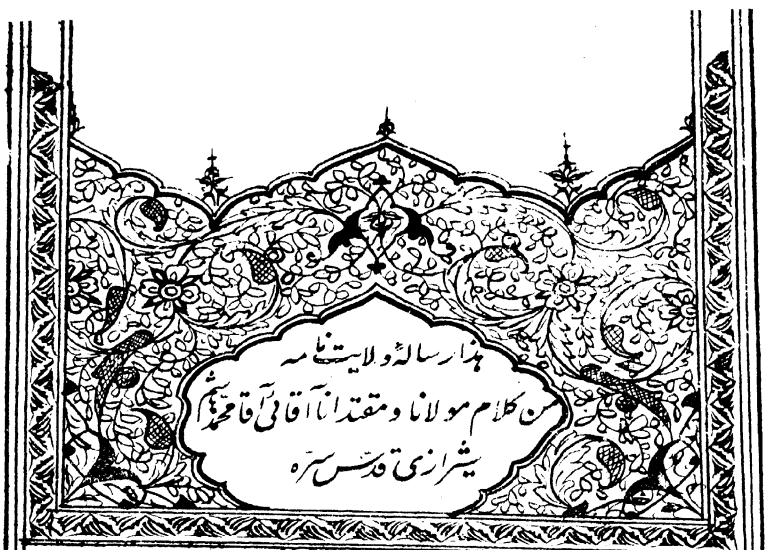 هذا رسالهٔ ولایت نامه
من کلام مولانا و مقتدانا آقائی آقا محمد هاشم
شیرازی قدّس سرّه